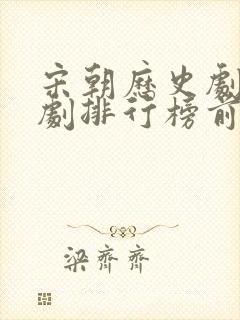 宋朝歷史劇
劇排行榜前
梁齊齊